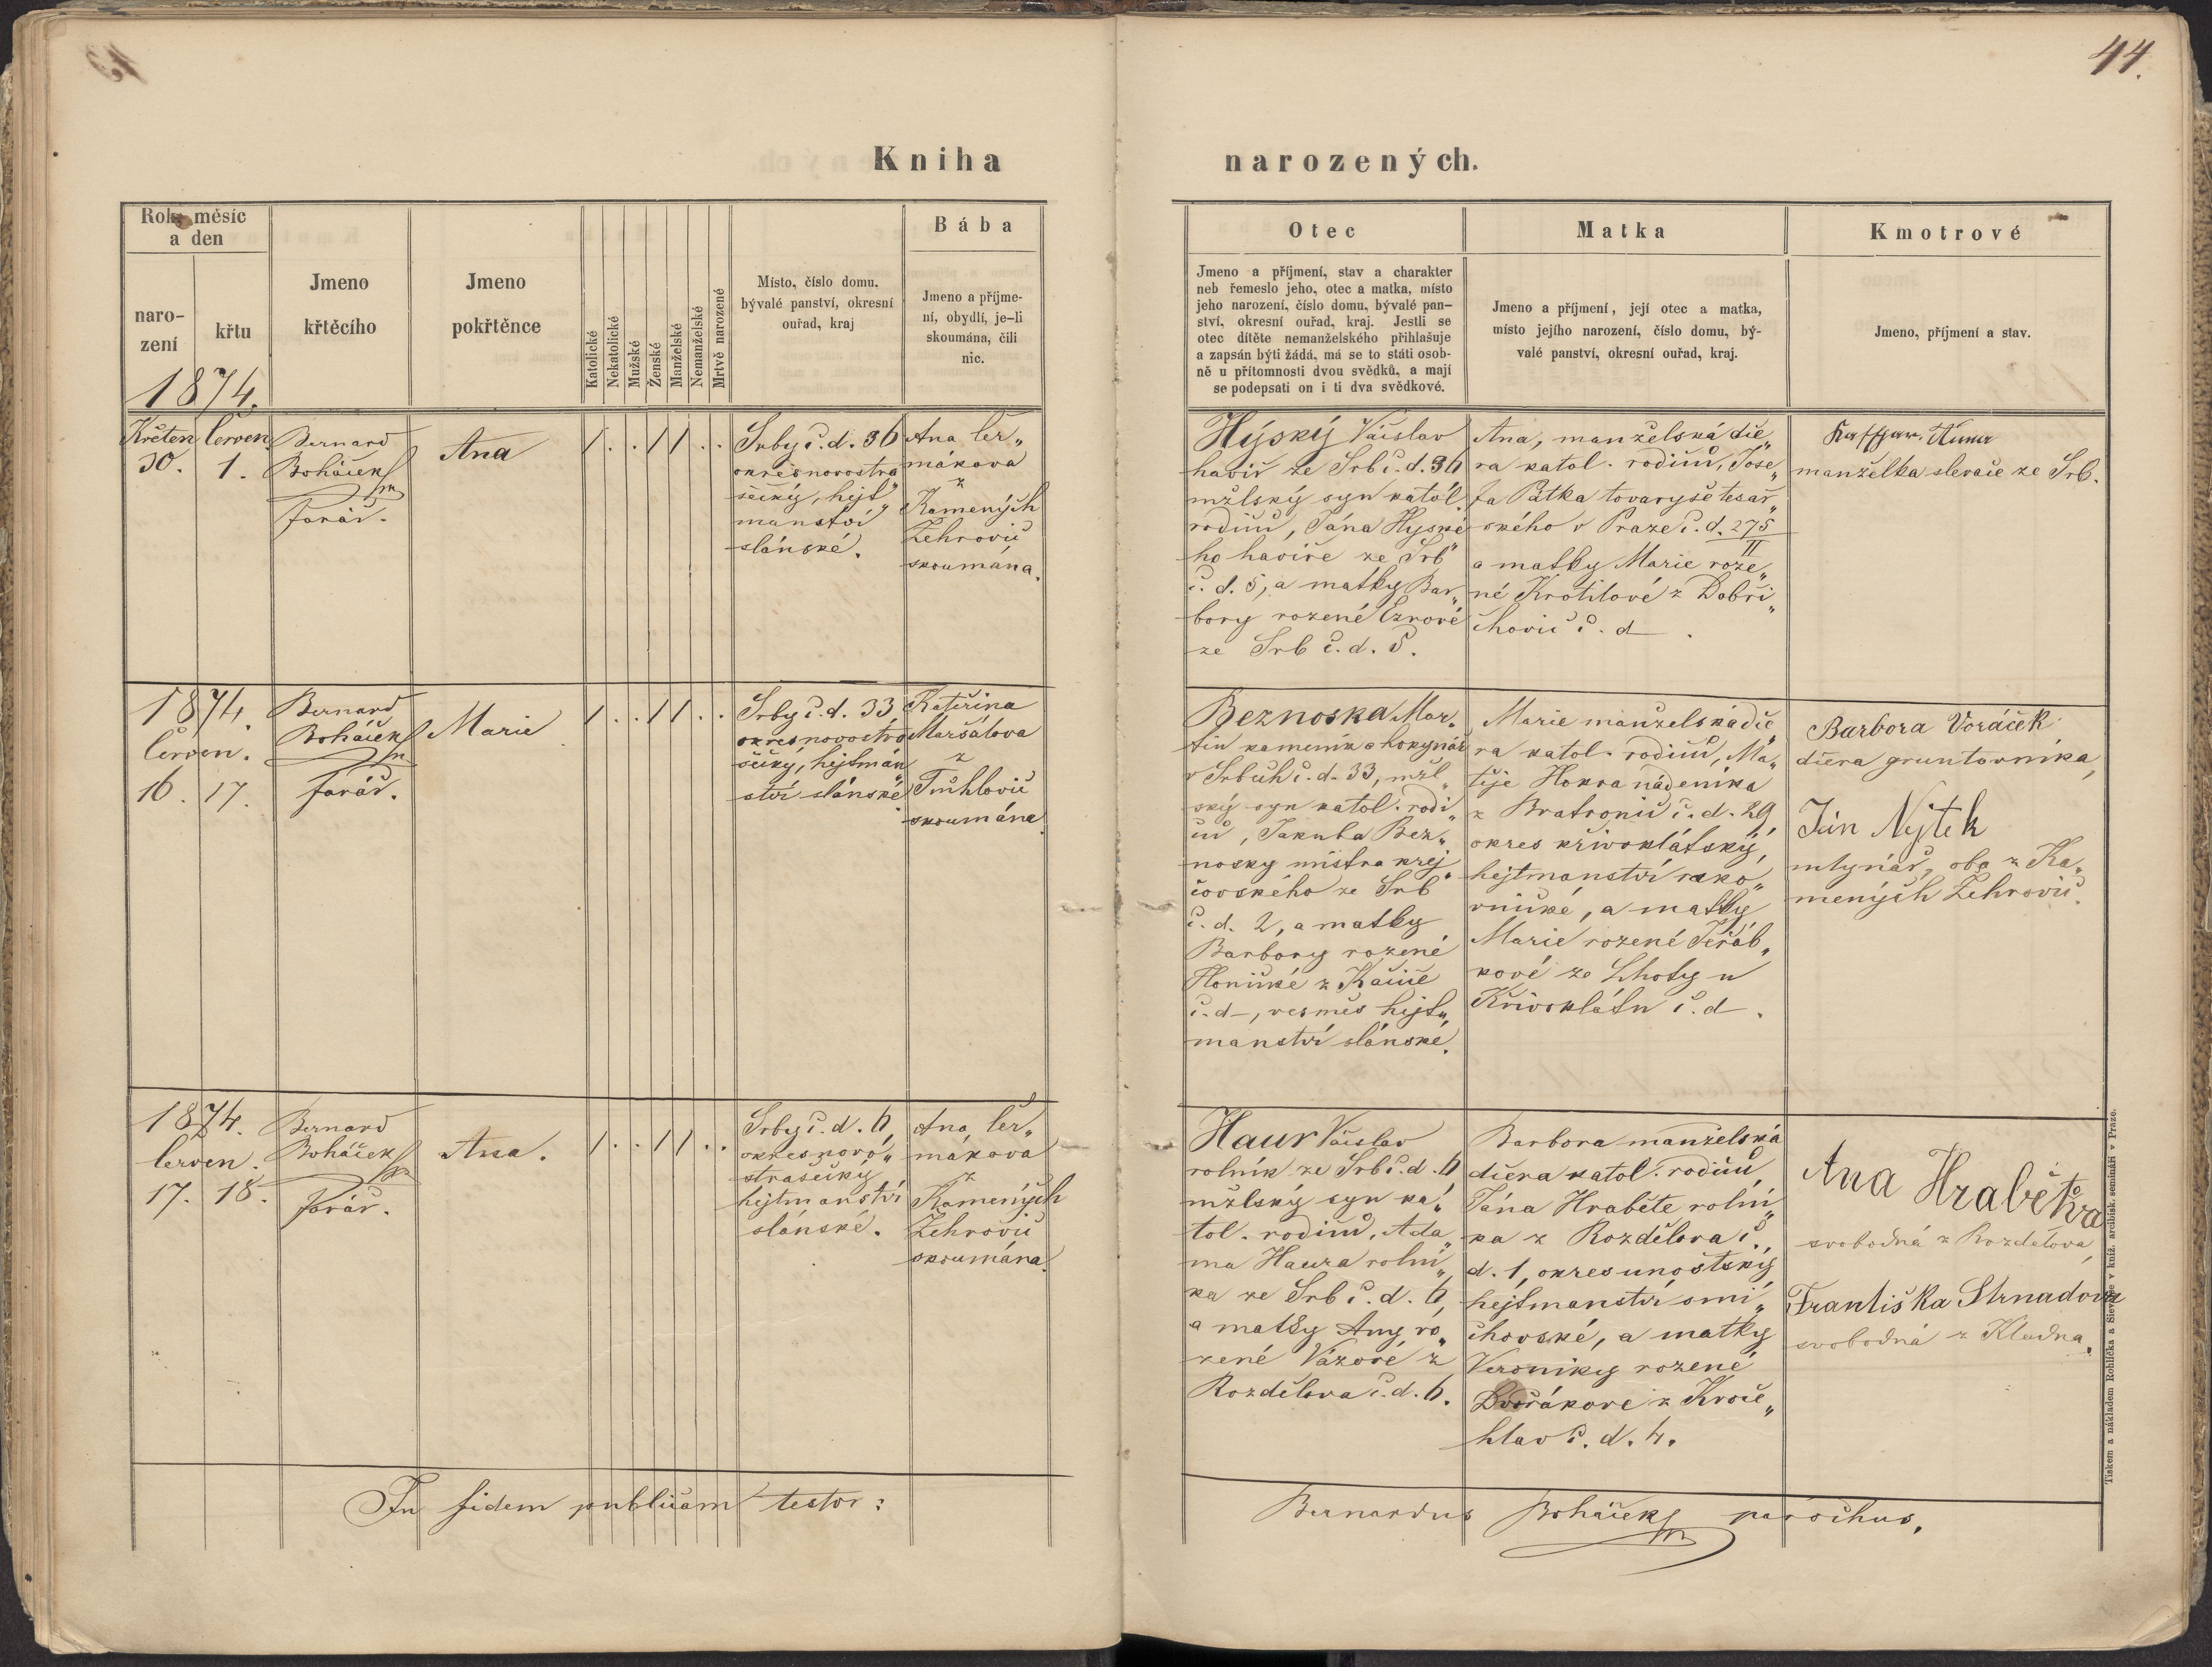 44.
Kniha narozených.
Rok, měsíc
a den
naro-
zení
křtu
1874.
Jmeno
křtěcího
Jmeno
pokřtěnce
Katolické
Nekatolické
Mužské
Ženské
Manželské
Nemanželské
Mrtvě narozené
Místo, číslo domu,
bývalé panství, okresní
ouřad, kraj
Bába
Jmeno a příjme-
ní, obydlí, je-li
skoumána, čili
nic.
Otec
Jmeno a příjmení, stav a charakter
neb řemeslo jeho, otec a matka, místo
jeho narození, číslo domu, bývalé pan-
ství, okresní ouřad, kraj. Jestli se
otec dítěte nemanželského přihlašuje
a zapsán býti žádá, má se to státi osob-
ně u přítomnosti dvou svědků, a mají
se podepsati on i ti dva svědkové.
Matka
Jmeno a příjmení, její otec a matka,
místo jejího narození, číslo domu, bý-
valé panství, okresní ouřad, kraj.
Kmotrové
Jmeno, příjmení a stav.
Květen
30.
Červen
1.
Bernard
Boháček
farář.
Ana
1 . . 1 1 . .
Srby č. d. 36
okres novostra
šecký, hejt„
manství
slánské.
Ana Čer„
mákova
z
Kamených
Žehrovic
skoumána.
Hýský Václav
havíř ze Srb č. d. 36
mžlský syn katol.
rodičů, Jána Hyské
ho havíře ze Srb
č. d. 5, a matky Bar„
bory rozené Ezrové
ze Srb č. d. 5.
Ana, manželská dce„
ra katol. rodičů, Jose„
fa Patka tovaryše tesař„
ského v Praze č. d. 275
II
a matky Marie roze„
né Krotilové z Dobři„
chovic č. d .
manželka slevače ze Srb.
1874.
Červen.
16. 17.
Bernard
Boháček
farář.
Marie
1 . . 1 1 . .
Srby č. d. 33
okres novostra
šecký, hejtman„
ství slánské.
Kateřina
Maršálova
z
Tuchlovic
skoumána.
Beznoska Mar„
tin kameník a hokynář
v Srbech č. d. 33, mžl„
ský syn katol. rodi„
čů, Jakuba Bez„
nosky mistra krej„
čovského ze Srb
č. d. 2, a matky
Barbory rozené
Honické z Kačice
č. d –, vesměs hejt„
manství slánské.
Marie manželská dce„
ra katol. rodičů, Ma„
těje Hokra nádeníka
z Bratronic č. d. 29,
okres křivoklátský,
hejtmanství rako„
vnické, a matky
Marie rozené Jeřáb„
kové ze Lhoty u
Křivoklátu č. d .
Barbora Voráček
dcera gruntovníka,
Ján Nejtek
mlynář, oba z Ka„
mených Žehrovic.
1874.
Červen.
17. 18.
Bernard
Boháček
farář.
Ana.
1 . . 1 1 . .
Srby č. d. 6,
okres novo„
strašecký,
hejtmanství
slánské.
Ana Čer„
mákova
z
Kamených
Žehrovic
skoumána.
Haur Václav
rolník ze Srb č. d. 6
mžlský syn ka„
tol. rodičů, Ada„
ma Haura rolní„
ka ze Srb č. d. 6,
a matky Any ro„
zené Vázové z
Rozdělova č. d. 6.
Barbora manželská
dcera katol. rodičů
Jána Hraběte rolní„
ka z Rozdělova č.
d. 1, okres unoštský
hejtmanství smí„
chovské, a matky
Veroniky rozené
Dvořákove z Kroče„
hlav č. d. 4.
Ana Hrabětova
svobodná z Rozdělova,
Františka Strnadova
svobodná z Kladna.
In fidem publicam testor:
Bernardus Boháček parochus.
Tiskem a nákladem Rohlíčka a Sieverse v kníž. arcibisk. semináři v Praze.